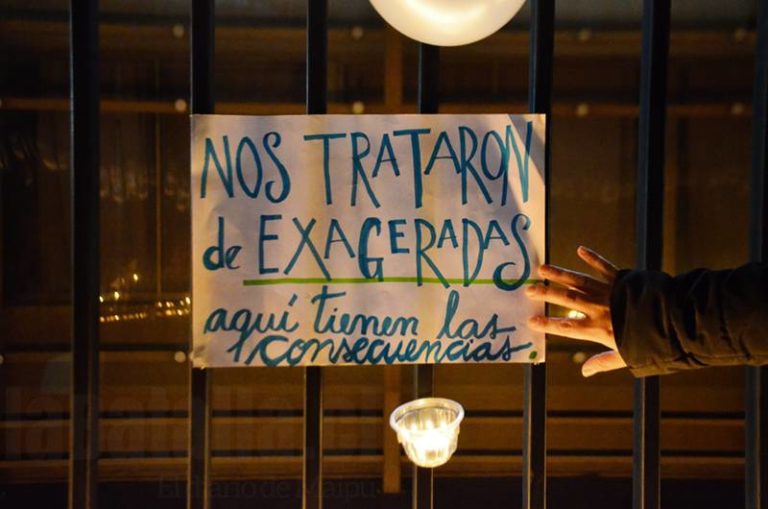 NOS TRATARON
de EXAGERADAS
aquí tienen las
consecuencias.
labatalla.cl
El diario de Maipú